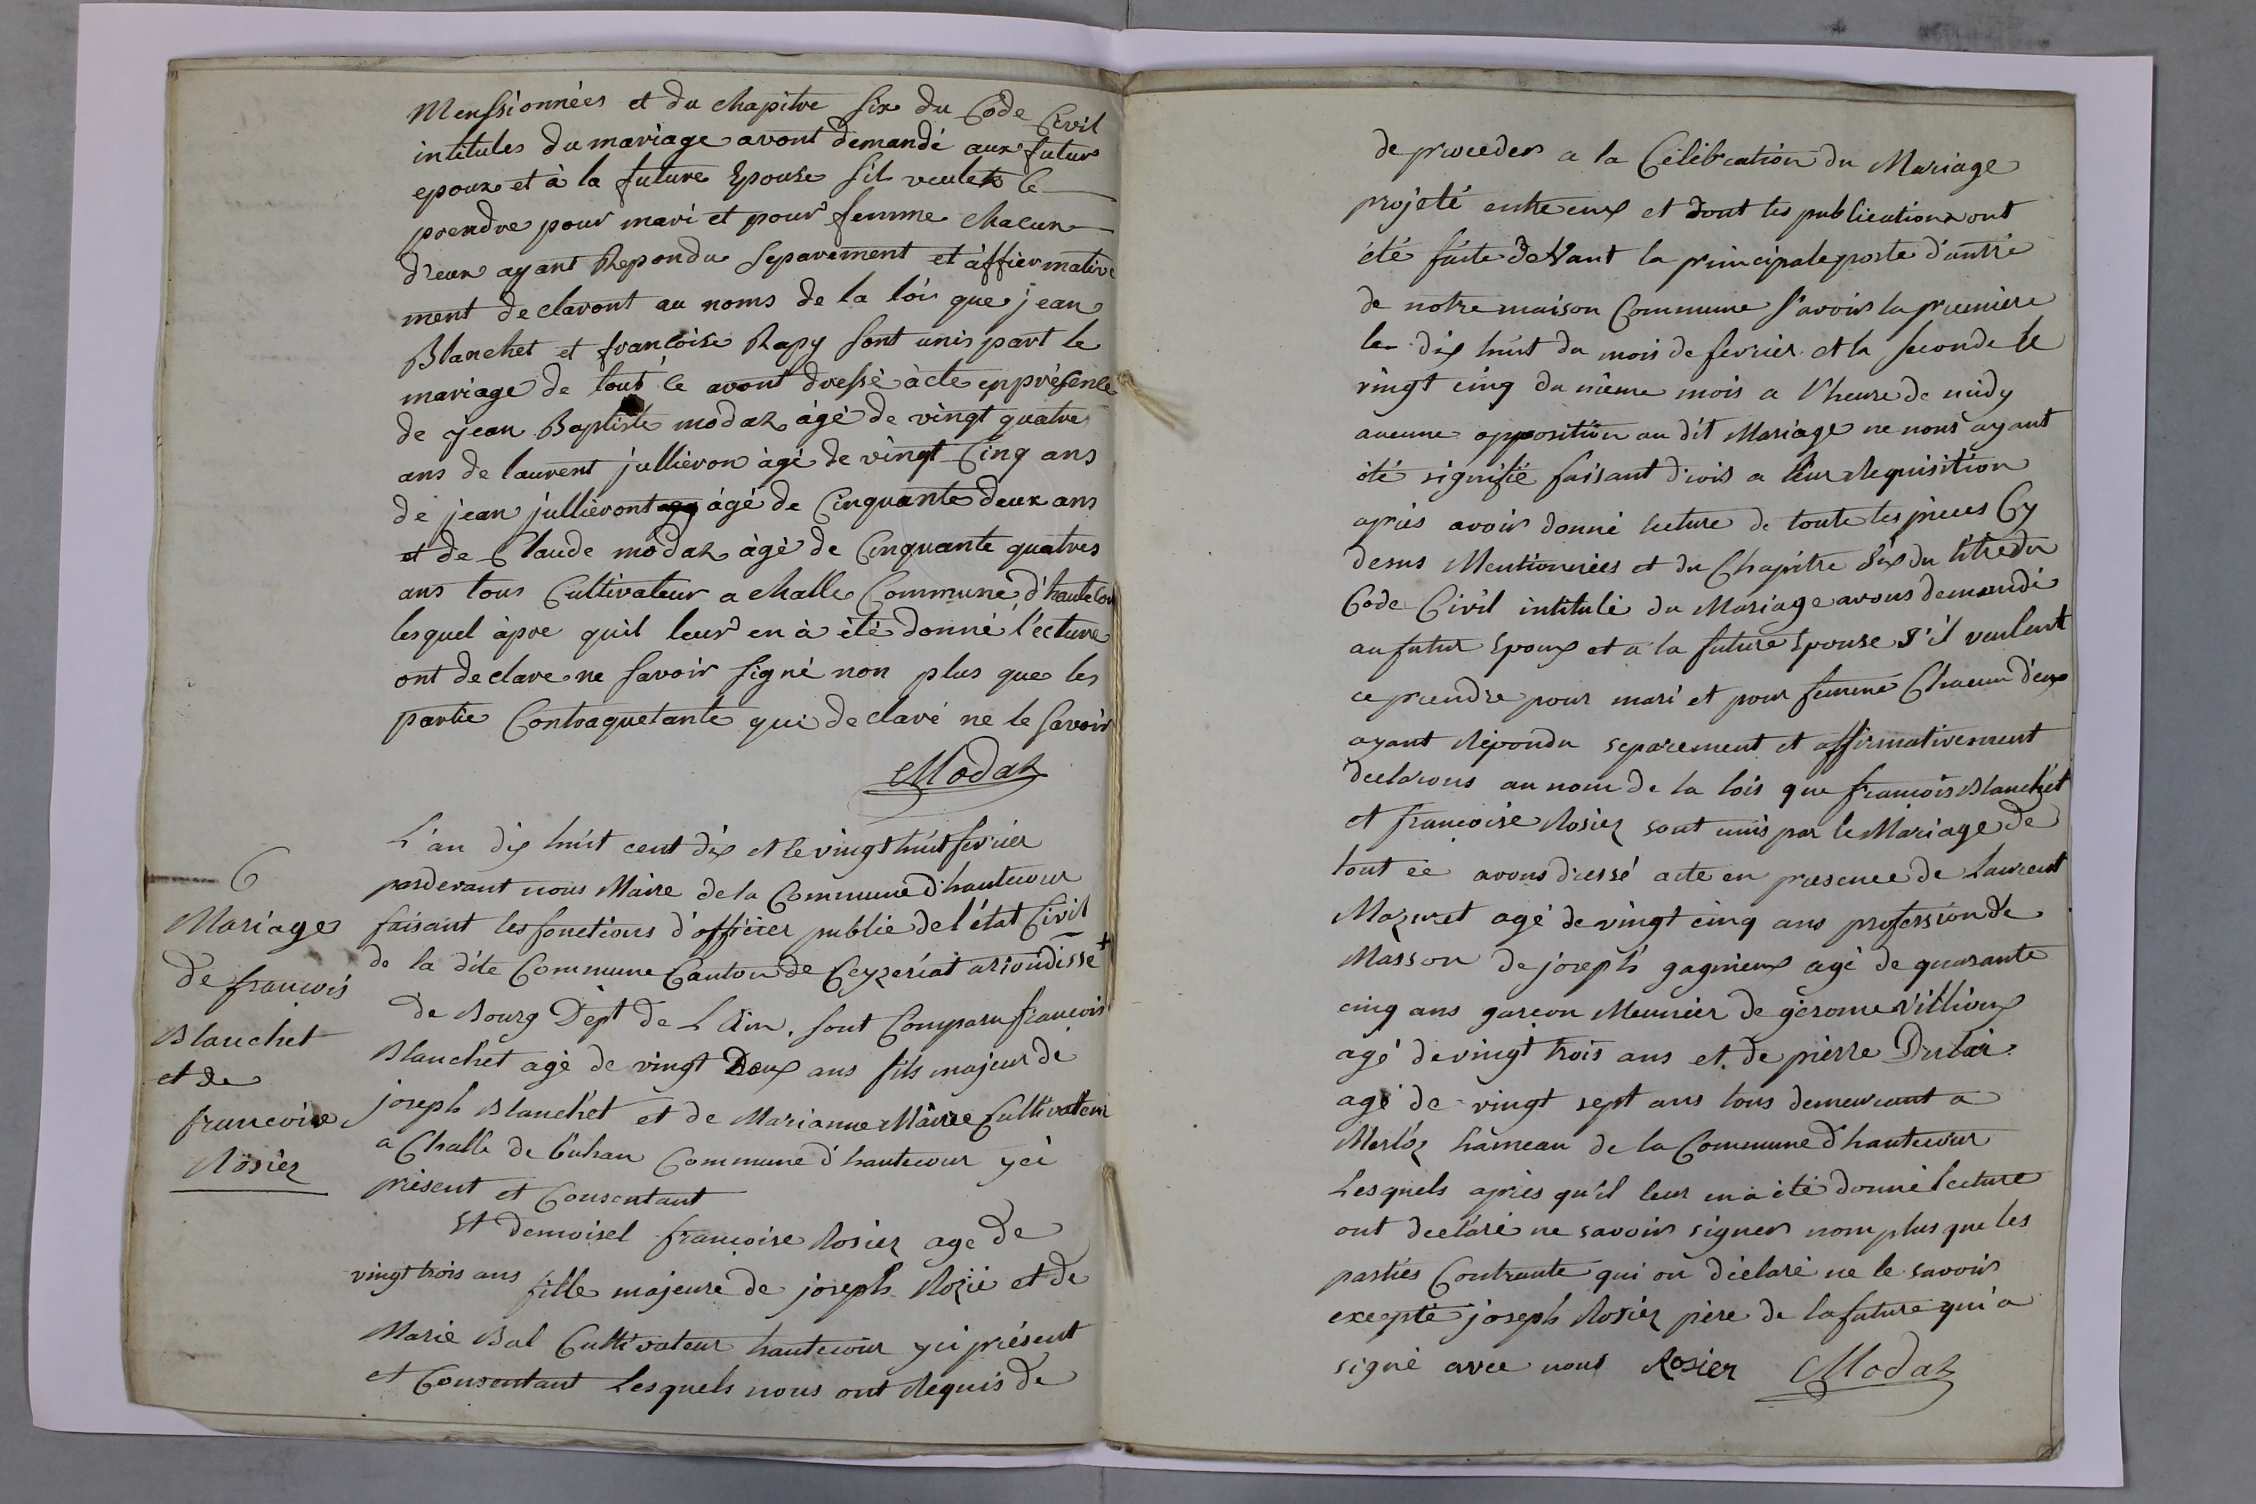 Menssionnées et du chapitre six du Code Civil
intitules du mariage avont demandé aux futur
epoux et à la future Epouse sil veulet ce
prendre pour mari et pour femme chacun
d'eux ayant Repondu separement et affiermative
ment declaront au noms de la loi que jean
Blanchet et francoise Rapy sont unis part le
mariage de tout ce avont dressé àcte en présence
de jean Baptiste modaz àgé de vingt quatre
ans de laurent jullieron àgé de vingt Cinq ans
de jean jullieront àgé de Cinquante deux ans
et de Claude modaz àgé de Cinquante quatres
ans tous Cultivateur a challe Commune d'hautecou
lesquel àpre quil leur en à été donné l'ecture
ont declare ne savoir signé non plus que les
partie Contraquetante qui declaré ne le savoir
Modaz
6
Mariage
de francois
Blanchet
et de
francoise
Rosier
L'an dix huit cent dix et le vingt huit fevrier
pardevant nous Maire de la Commune d'hautecour
faisant les fonctions d'officier public de l'état Civil
de la dite Commune Canton de Ceyzeriat arrondisse +
de Bourg Dept de L'Ain. sont Comparu francois
Blanchet agé de vingt Deux ans fils majeur de
joseph Blanchet et de Marianne Maire Cultivateur
a Challe de Commune d'hautecour yci
présent et Consentant
Et demoisel francoise Rosier age de
vingt trois ans fille majeure de joseph Rozié et de
Marie Bal Cultivateur hautecour yci présent
et Consentant Lesquels nous ont Requis de
de proceder a la Célébration du Mariage
projeté entre eux et dont les publications ont
été faite devant la principale porte d'antré
de notre maison Commune s'avoir la premiere
le dix huit du mois de fevrier et la seconde le
vingt cinq du même mois a l'heure de midy
aucune opposition au dit Mariage ne nous ayant
été signifié faisant drois a leur Requisition
après avoir donné lecture de toute les pieces Cy
desus Mentionnées et du Chapitre six du titre du
Code Civil intitulé du Mariage avons demandé
au futur Epoux et a la future Epouse s'il veulent
ce prendre pour mari et pour femme Chacun d'eux
ayant Répondu separement et affirmativement
declarons au nom de la lois que francois Blanchet
et francoise Rosier sont unis par le Mariage de
tout ce avons dressé acte en presence de Laurent
Mazuret agé de vingt cinq ans profession de
Masson de joseph gagnieux agé de quarante
cinq ans garcon Meunier de gérome Villioux
agé de vingt trois ans et de pierre
agé de vingt sept ans tous demeurant a
Merloz hameau de la Commune d'hautecour
Lesquels après qu'il leur en à été donné lecture
ont declaré ne savoir signer nom plus que les
parties Contrante qui on déclaré ne le savoir
excepté joseph Rosier père de la future qui a
signé avec nous Rosier Modaz